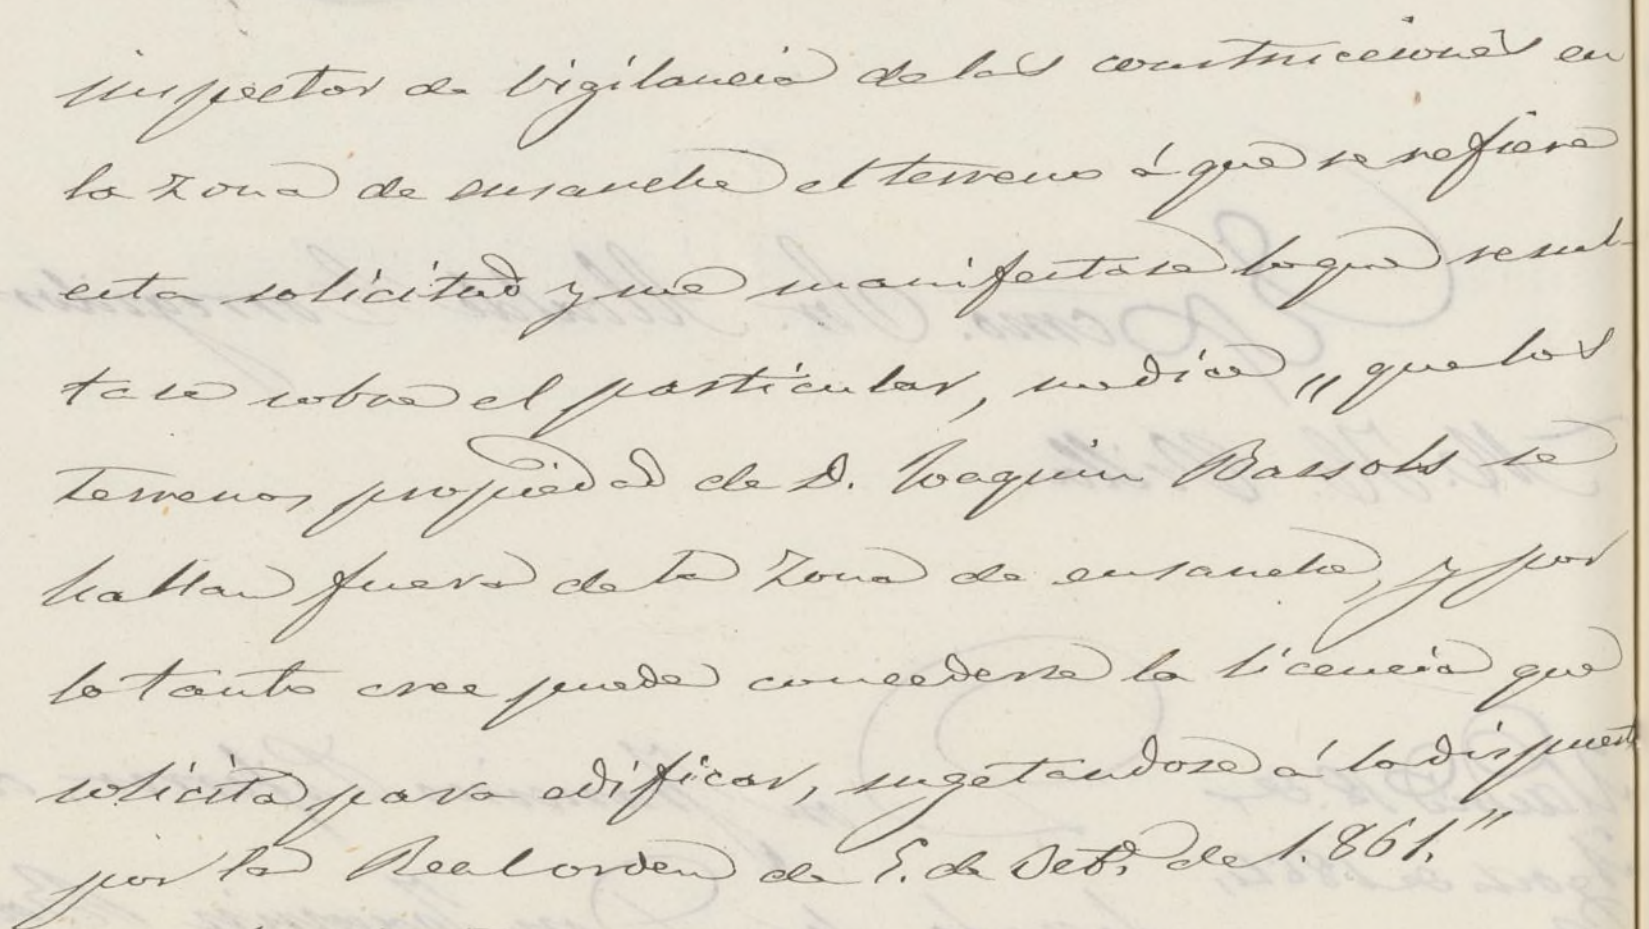 inspector de vigilancia de las construcciones en
la zona de ensanche el terreno á que se refiere
esta solicitud y me manifestase lo que resul-
tase sobre el particular, me dice „que los
terrenos propiedad de D. Joaquin Bassols se
hallan fuera de la zona de ensanche, y por
lo tanto cree puede concederse la licencia que
solicita para edificar, sugetandose á lo dispuesto
por la Real orden de 5. de Set.e de 1.861."